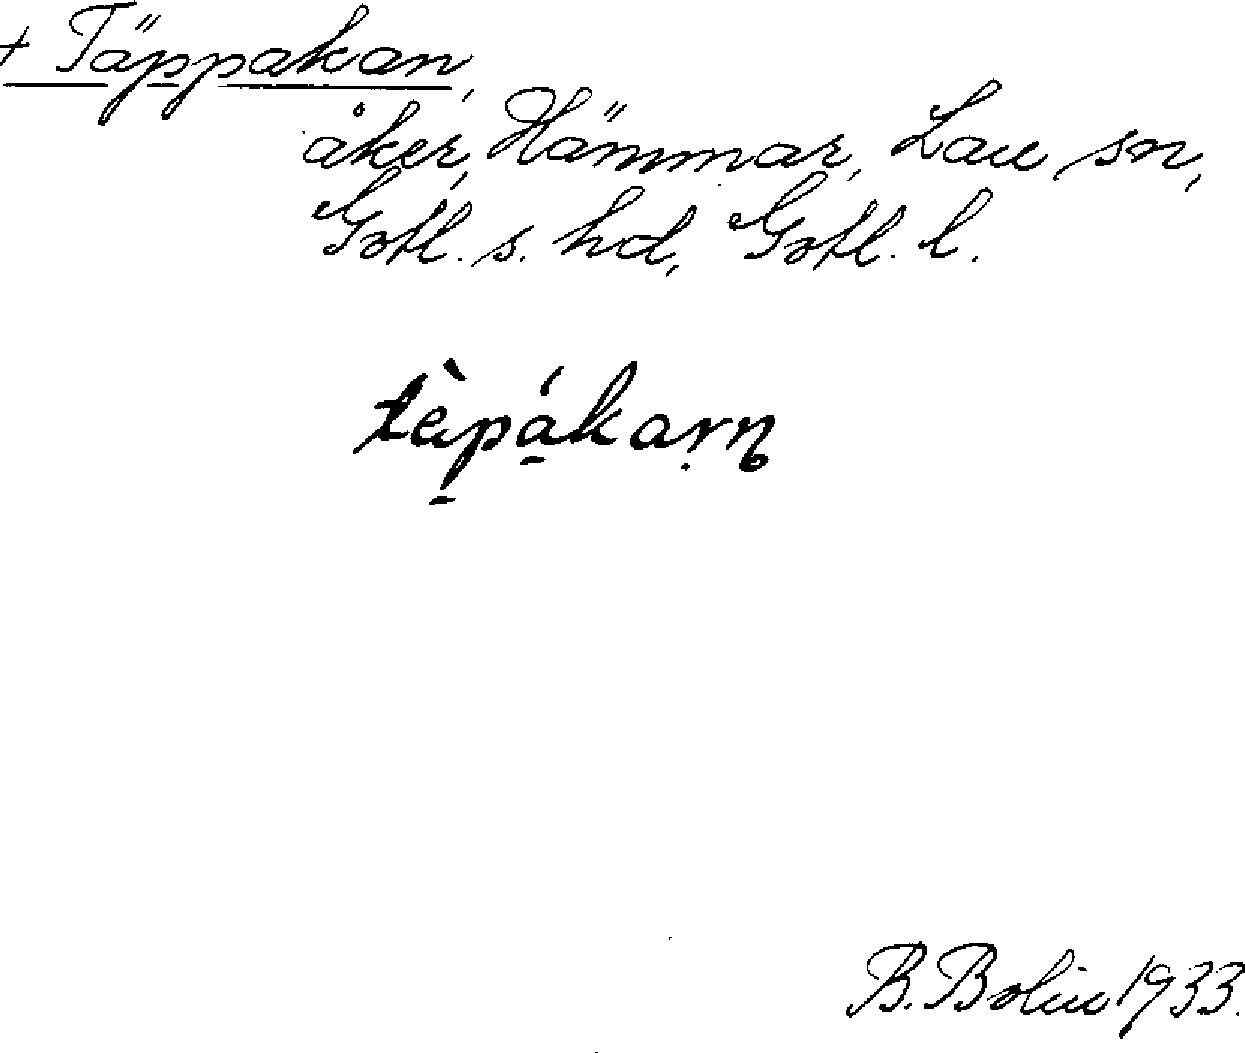 + Täppakan,
åker, Hämmar, Lau sn,
Gotl. s. hd, Gotl. l.
tè̠pá̠kaṛn̥
B. Bolin 1933.